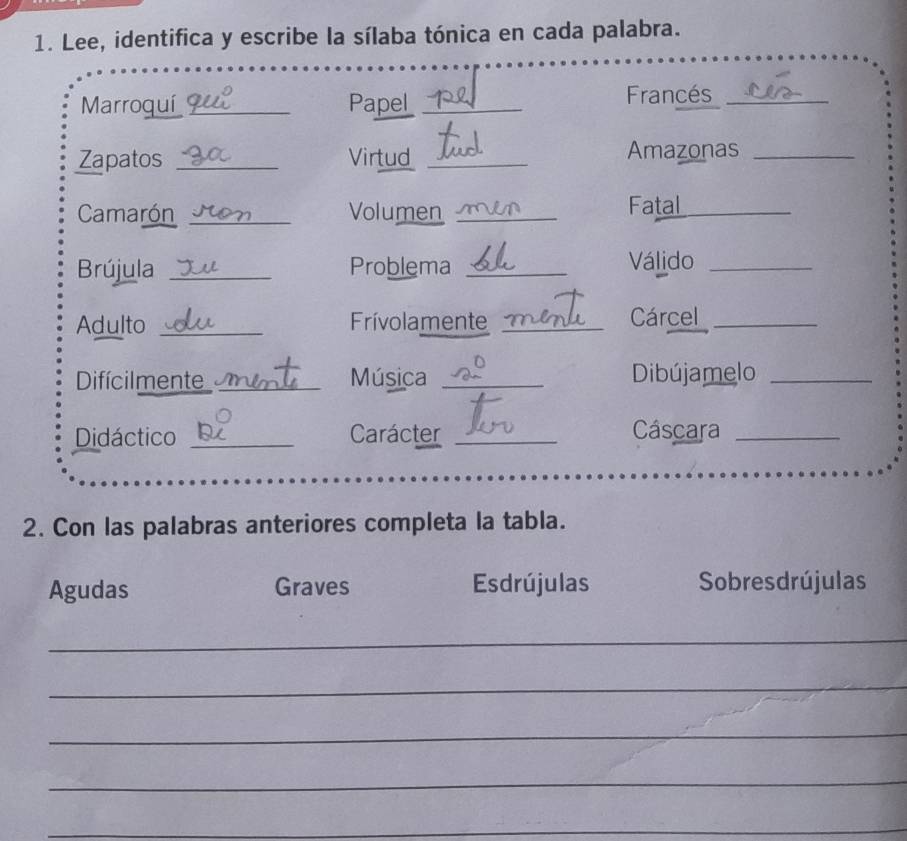 1. Lee, identifica y escribe la sílaba tónica en cada palabra.
Marroquí qui Papel pel Francés cés
Zapatos za Virtud tud Amazonas
Camarón ron Volumen men Fatal
Brújula Ju Problema ble Válido
Adulto du Frívolamente mente Cárcel
Difícilmente mente Música si Dibújamelo
Didáctico Di Carácter ter Cáscara
2. Con las palabras anteriores completa la tabla.
Agudas Graves Esdrújulas Sobresdrújulas